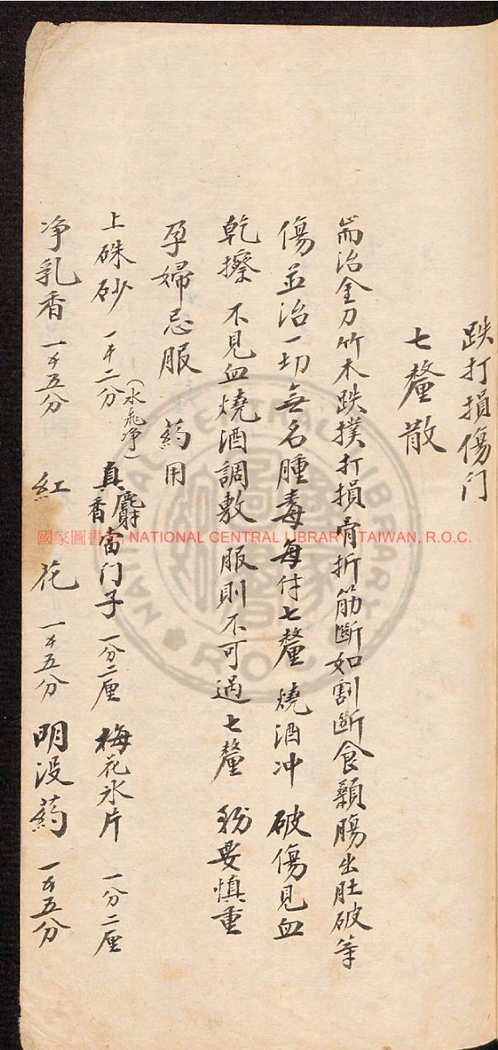 跌打損傷门
七釐散
耑治金刀竹木跌撲打損骨折筋斷如割斷食顙腸出肚破等
傷並治一切無名腫毒每付七釐 燒酒冲 破傷見血
乾擦 不見血燒酒調敷 服則不可過七釐 務要慎重
孕婦忌服 药用
上硃砂 一𠦑二分(水飛净) 真麝香當门子 一分二厘 梅花冰片 一分二厘
净乳香 一𠦑五分 紅花 一𠦑五分 明没药 一𠦑五分
國家圖書館 NATIONAL CENTRAL LIBRARY, TAIWAN, R.O.C.
NATIONAL CENTRAL LIBRARY R.O.C.